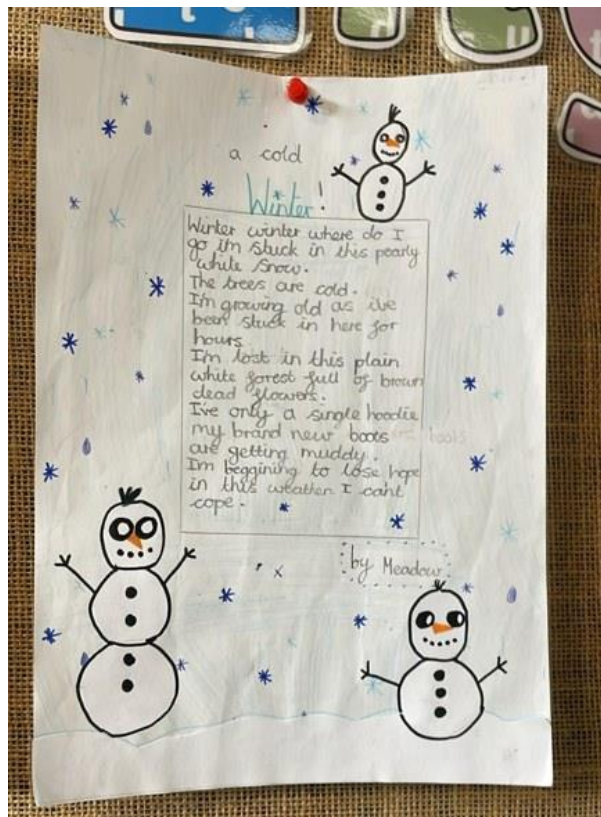 a cold
Winter!
Winter winter where do I
go im stuck in this pearly
white snow.
The trees are cold.
I'm growing old as i've
been stuck in here for
hours
I'm lost in this plain
white forest full of brown
dead flowers.
I've only a single hoodie
my brand new boots
are getting muddy.
Im beggining to lose hope
in this weather I can't
cope.
by Meadow.